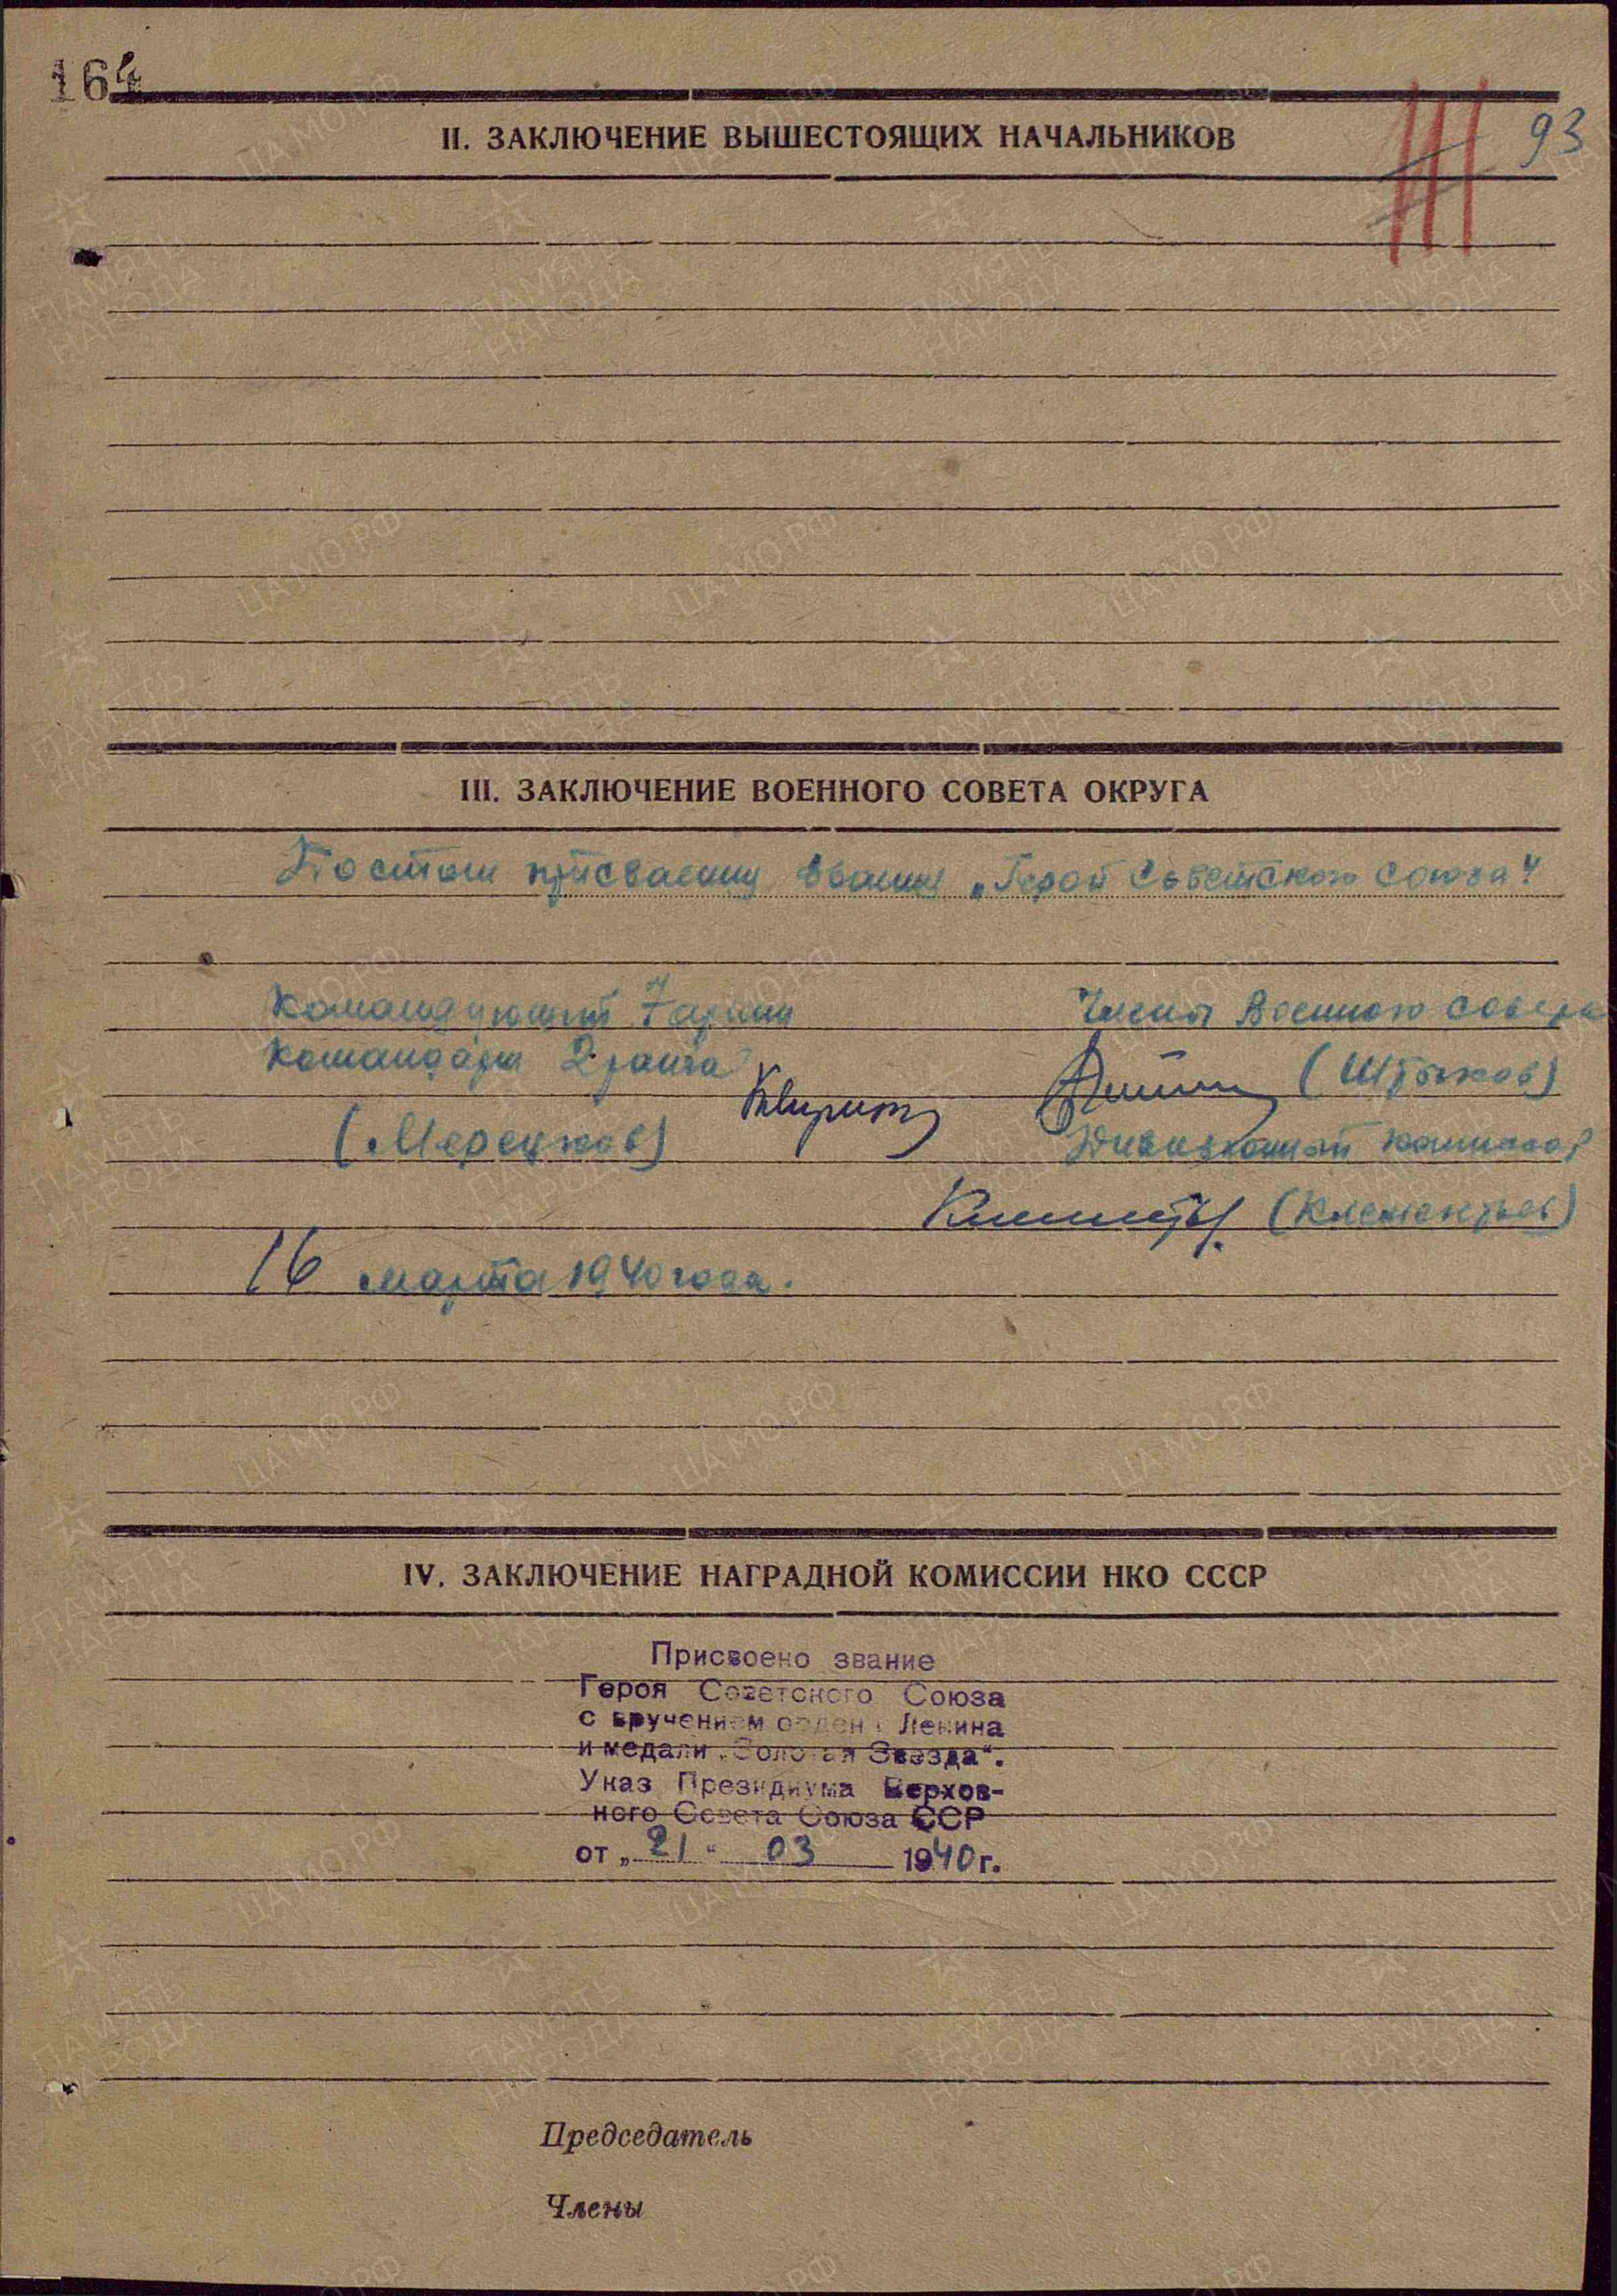 164
93
II. ЗАКЛЮЧЕНИЕ ВЫШЕСТОЯЩИХ НАЧАЛЬНИКОВ
III. ЗАКЛЮЧЕНИЕ ВОЕННОГО СОВЕТА ОКРУГА
Достоин присвоения звания „Герой Советского Союза“
Командующий 7 армии
Члены Военного Совета
Командарм 2 ранга
(Штыков)
(Мерецков)
Дивизионный комиссар
(Клементьев)
16 марта 1940 года.
IV. ЗАКЛЮЧЕНИЕ НАГРАДНОЙ КОМИССИИ НКО СССР
Присвоено звание
Героя Советского Союза
с вручением орден Ленина
и медали „Золотая Звезда“.
Указ Президиума Верхов-
ного Совета Союза ССР
от „21“ 03 1940 г.
Председатель
Члены
ПАМЯТЬ НАРОДА
ЦАМО.РФ